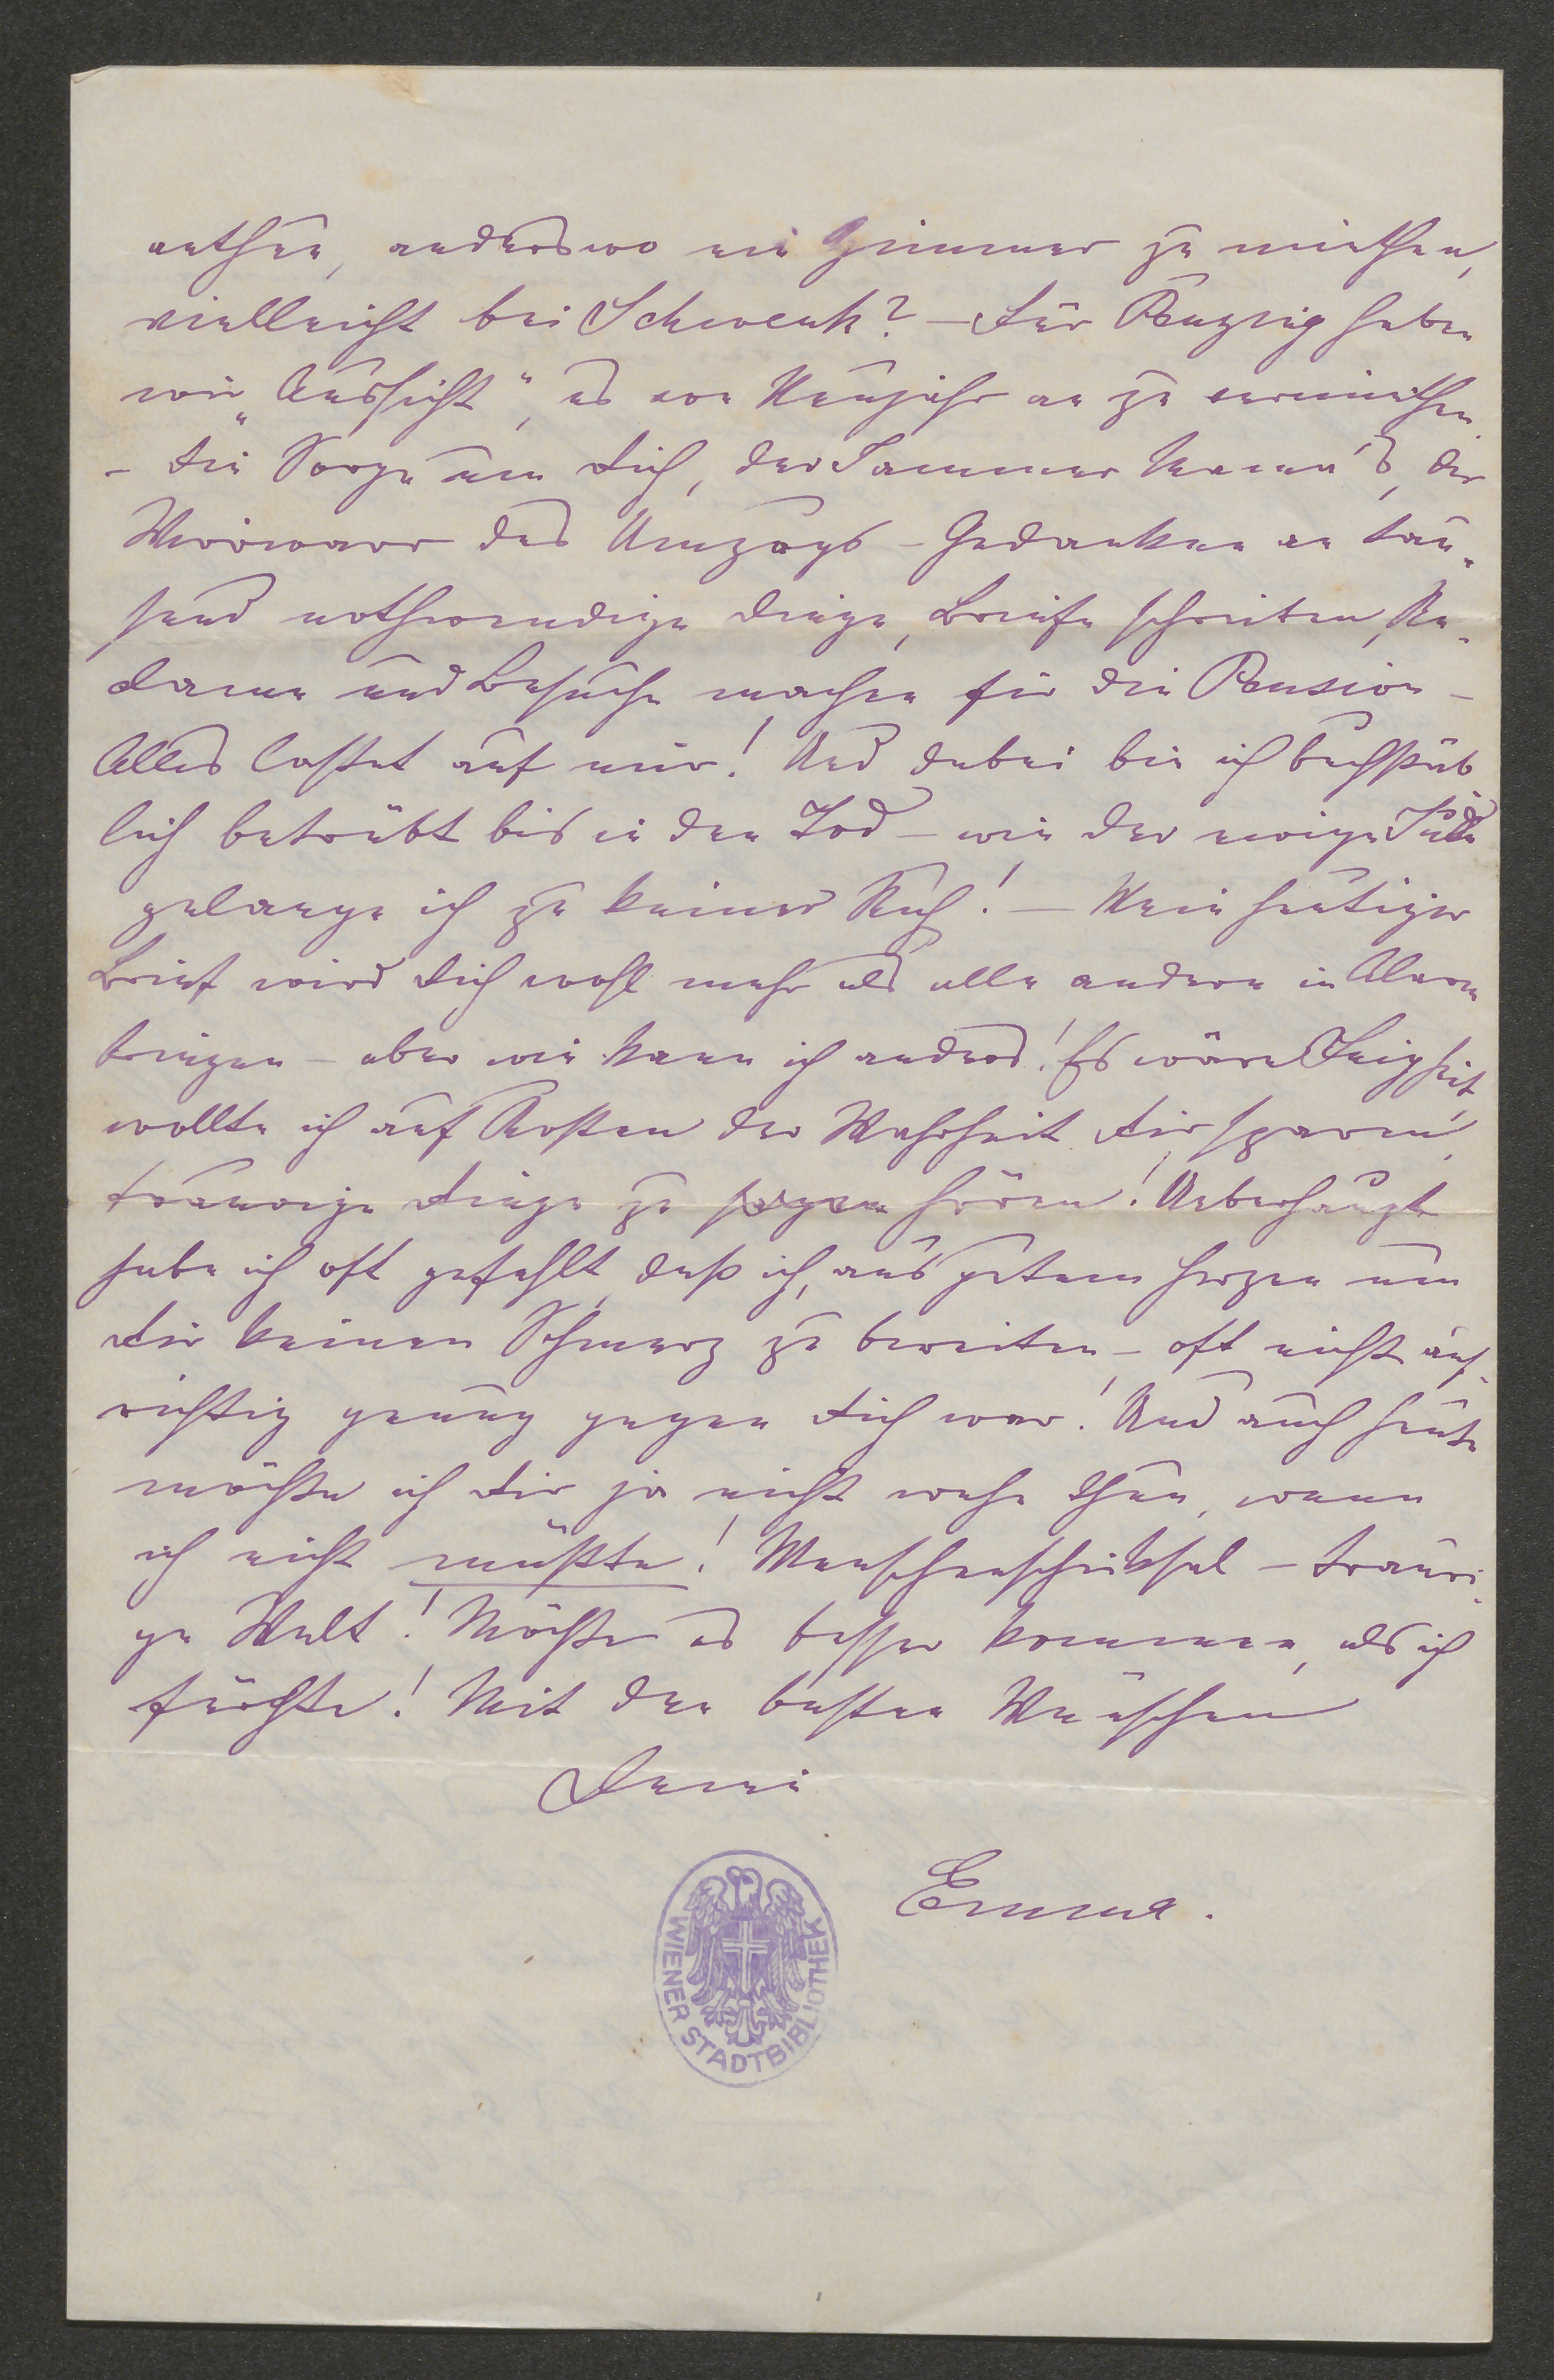 rathen, anderswo ein Zimmer zu miethen,
vielleicht bei Schwenk? – Für Penzing haben
wir „Aussicht“, es von Neujahr an zu vermiethen.
– Die Sorge um Dich, der Jammer Mama's, der
Wirrwarr des Umzugs – Gedanken an tau-
send nothwendige Dinge, Briefe schreiben, Re-
clame und Besuche machen für die Pension –
Alles lastet auf mir! Und dabei bin ich buchstäb
lich betrübt bis in den Tod – wie der ewige Jude
gelange ich zu keiner Ruh! – Mein heutiger
Brief wird Dich wohl mehr als alle andern in Alarm
bringen – aber wie kann ich anders! Es wäre Feigheit,
wollte ich auf Kosten der Wahrheit Dir sparen,
traurige Dinge zu hören! Ueberhaupt
habe ich oft gefehlt, daß ich, aus gutem Herzen um
Dir keinen Schmerz zu bereiten – oft nicht auf-
richtig genug gegen Dich war! Und auch heute
möchte ich Dir ja nicht wehe thun, wenn
ich nicht müßte! Menschenschicksal – trauri-
ge Welt! Möchte es besser kommen, als ich
fürchte! Mit den besten Wünschen
Deine
Emma.
WIENER STADTBIBLIOTHEK